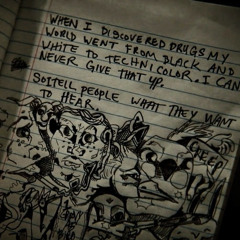 WHEN I DISCOVERED DRUGS MY
WORLD WENT FROM BLACK AND
WHITE TO TECHNICOLOR. I CAN
NEVER GIVE THAT UP.
SO I TELL PEOPLE WHAT THEY WANT
TO HEAR.